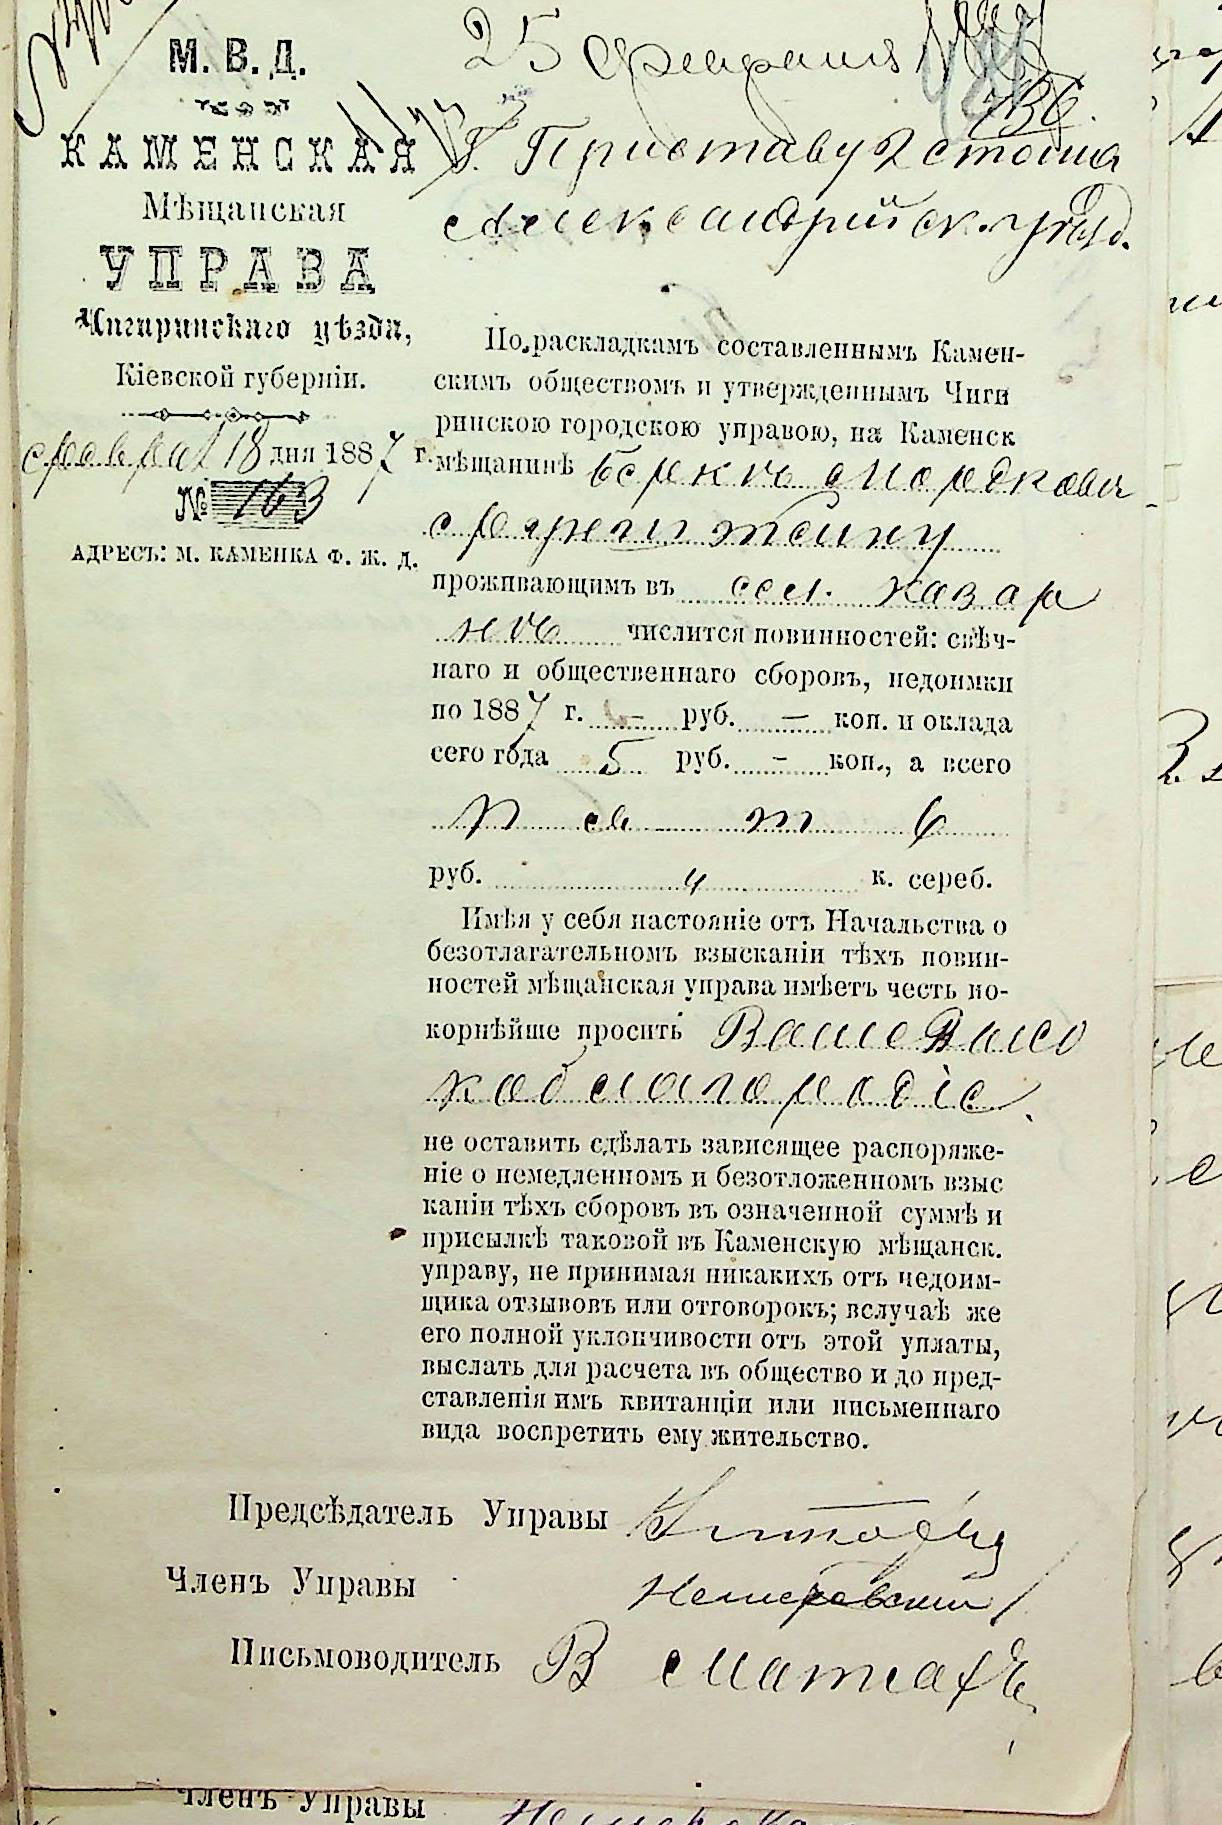 25 февраля
436.
М. В. Д.
КАМЕНСКАЯ
Мѣщанская
УПРАВА
Чигиринскаго уѣзда,
Кіевской губерніи.
феврал 18 дня 1887 г.
№ 163
АДРЕСЪ: М. КАМЕНКА Ф. Ж. Д.
Г. Приставу 2 стана
Александрійск. уѣзд.
По раскладкамъ составленнымъ Камен-
скимъ обществомъ и утвержденнымъ Чиги
ринскою городскою управою, на Каменск
мѣщанинѣ Беркѣ Мордков
проживающимъ въ сел. Казар
нѣ числится повинностей: свѣч-
наго и общественнаго сборовъ, недоимки
по 1887 г. — руб. — коп. и оклада
сего года 5 руб. - коп., а всего
пять
руб. к. сереб.
Имѣя у себя настояніе отъ Начальства о
безотлагательномъ взысканіи тѣхъ повин-
ностей мѣщанская управа имѣетъ честь по-
корнѣйше просить Ваше Высо
коблагородіе
не оставить сдѣлать зависящее распоряже-
ніе о немедленномъ и безотложенномъ взыс
каніи тѣхъ сборовъ въ означенной суммѣ и
присылкѣ таковой въ Каменскую мѣщанск.
управу, не принимая никакихъ отъ недоим-
щика отзывовъ или отговорокъ; вслучаѣ же
его полной уклончивости отъ этой уплаты,
выслать для расчета въ общество и до пред-
ставленія имъ квитанціи или письменнаго
вида воспретить ему жительство.
Предсѣдатель Управы
Членъ Управы Немеровский
Письмоводитель В
Членъ Управы